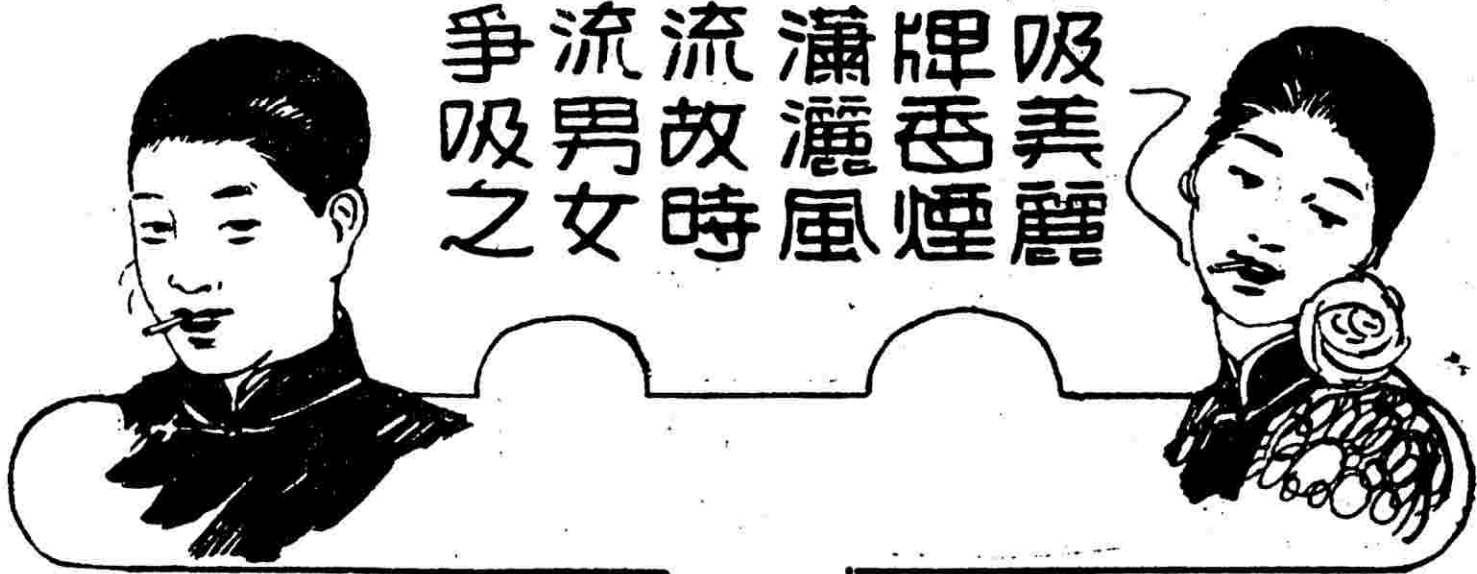 吸美麗
牌香煙
瀟灑風
流故時
流男女
爭吸之